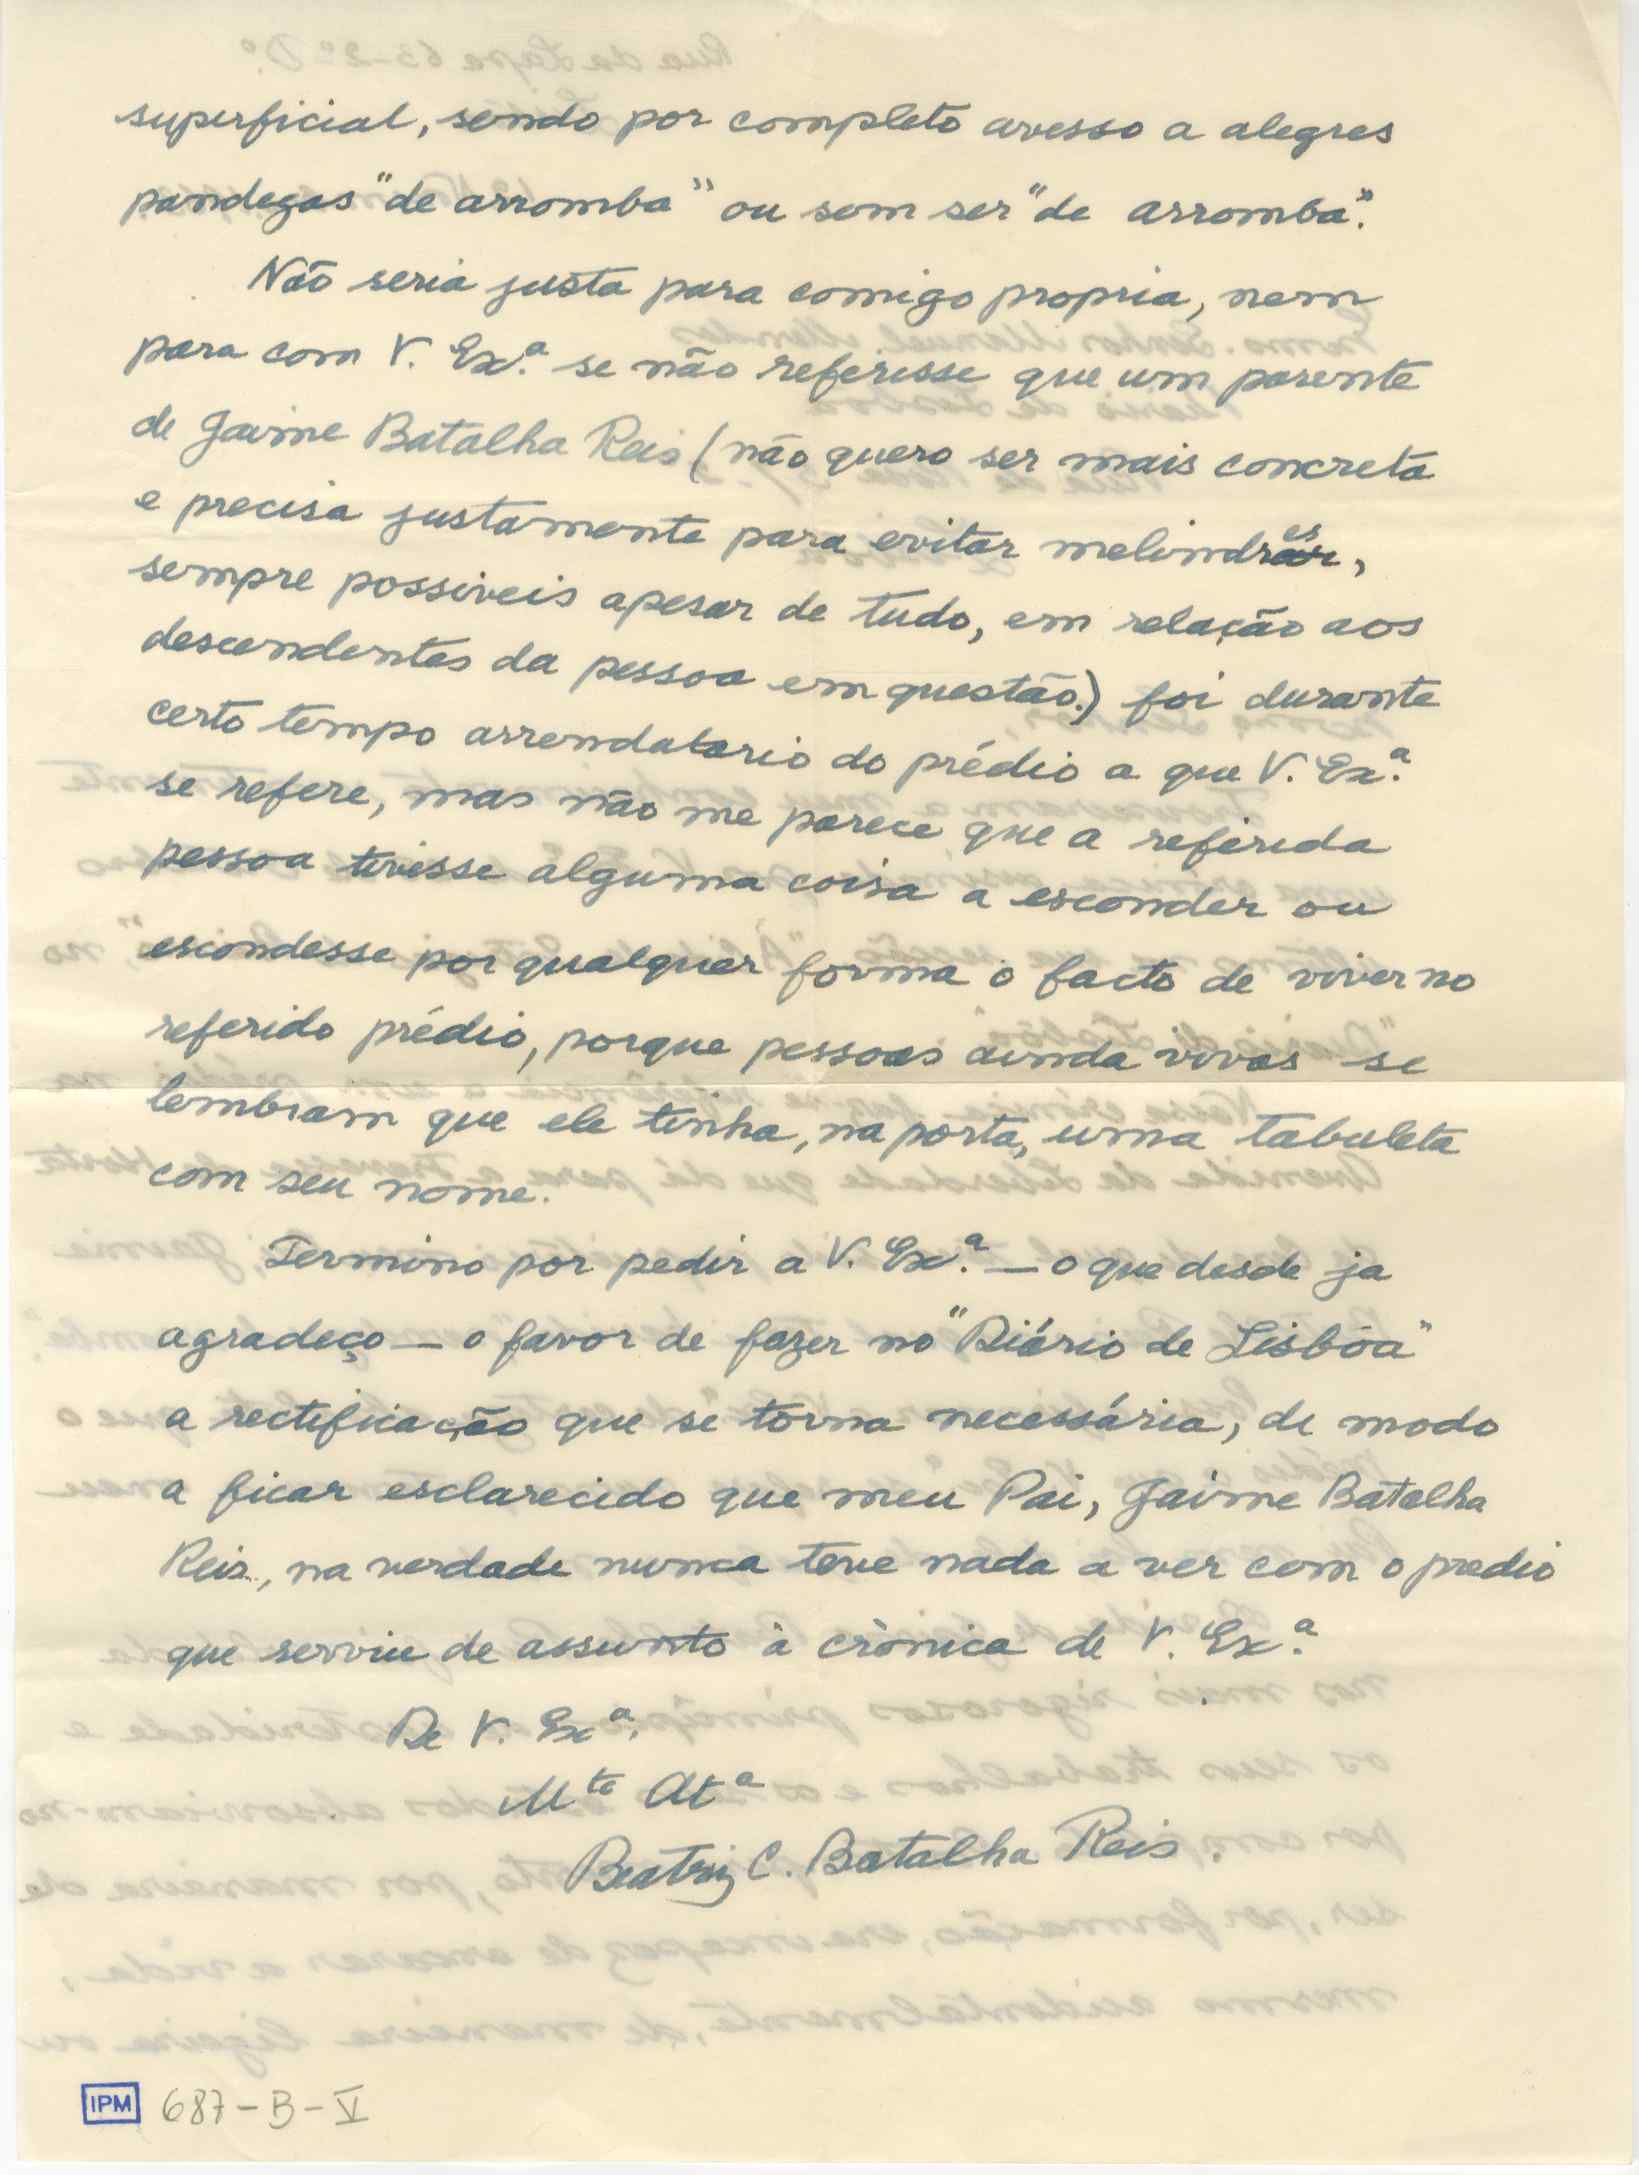 superficial, sendo por completo avesso a alegres
pandegas "de arromba" ou sem ser "de arromba".
Não seria justa para comigo propria, nem
para com V. Ex.ª se não referisse que um parente
de Jaime Batalha Reis (não quero ser mais concreta
e precisa justamente para evitar melindres,
sempre possiveis apesar de tudo, em relação aos
descendentes da pessoa em questão.) foi durante
certo tempo arrendatario do prédio a que V. Ex.ª
se refere, mas não me parece que a referida
pessoa tivesse alguma coisa a esconder ou
escondesse por qualquer forma o facto de viver no
referido prédio, porque pessoas ainda vivas se
lembram que ele tinha, na porta, uma tabuleta
com seu nome.
Termino por pedir a V. Ex.ª — o que desde ja
agradeço — o favor de fazer no "Diário de Lisbôa"
a rectificação que se torna necessária, de modo
a ficar esclarecido que meu Pai, Jaime Batalha
Reis, na verdade nunca teve nada a ver com o predio
que serviu de assunto à crònica de V. Ex.ª
De V. Ex.ª,
M.to At.a
Beatriz C. Batalha Reis.
IPM 687-B-V